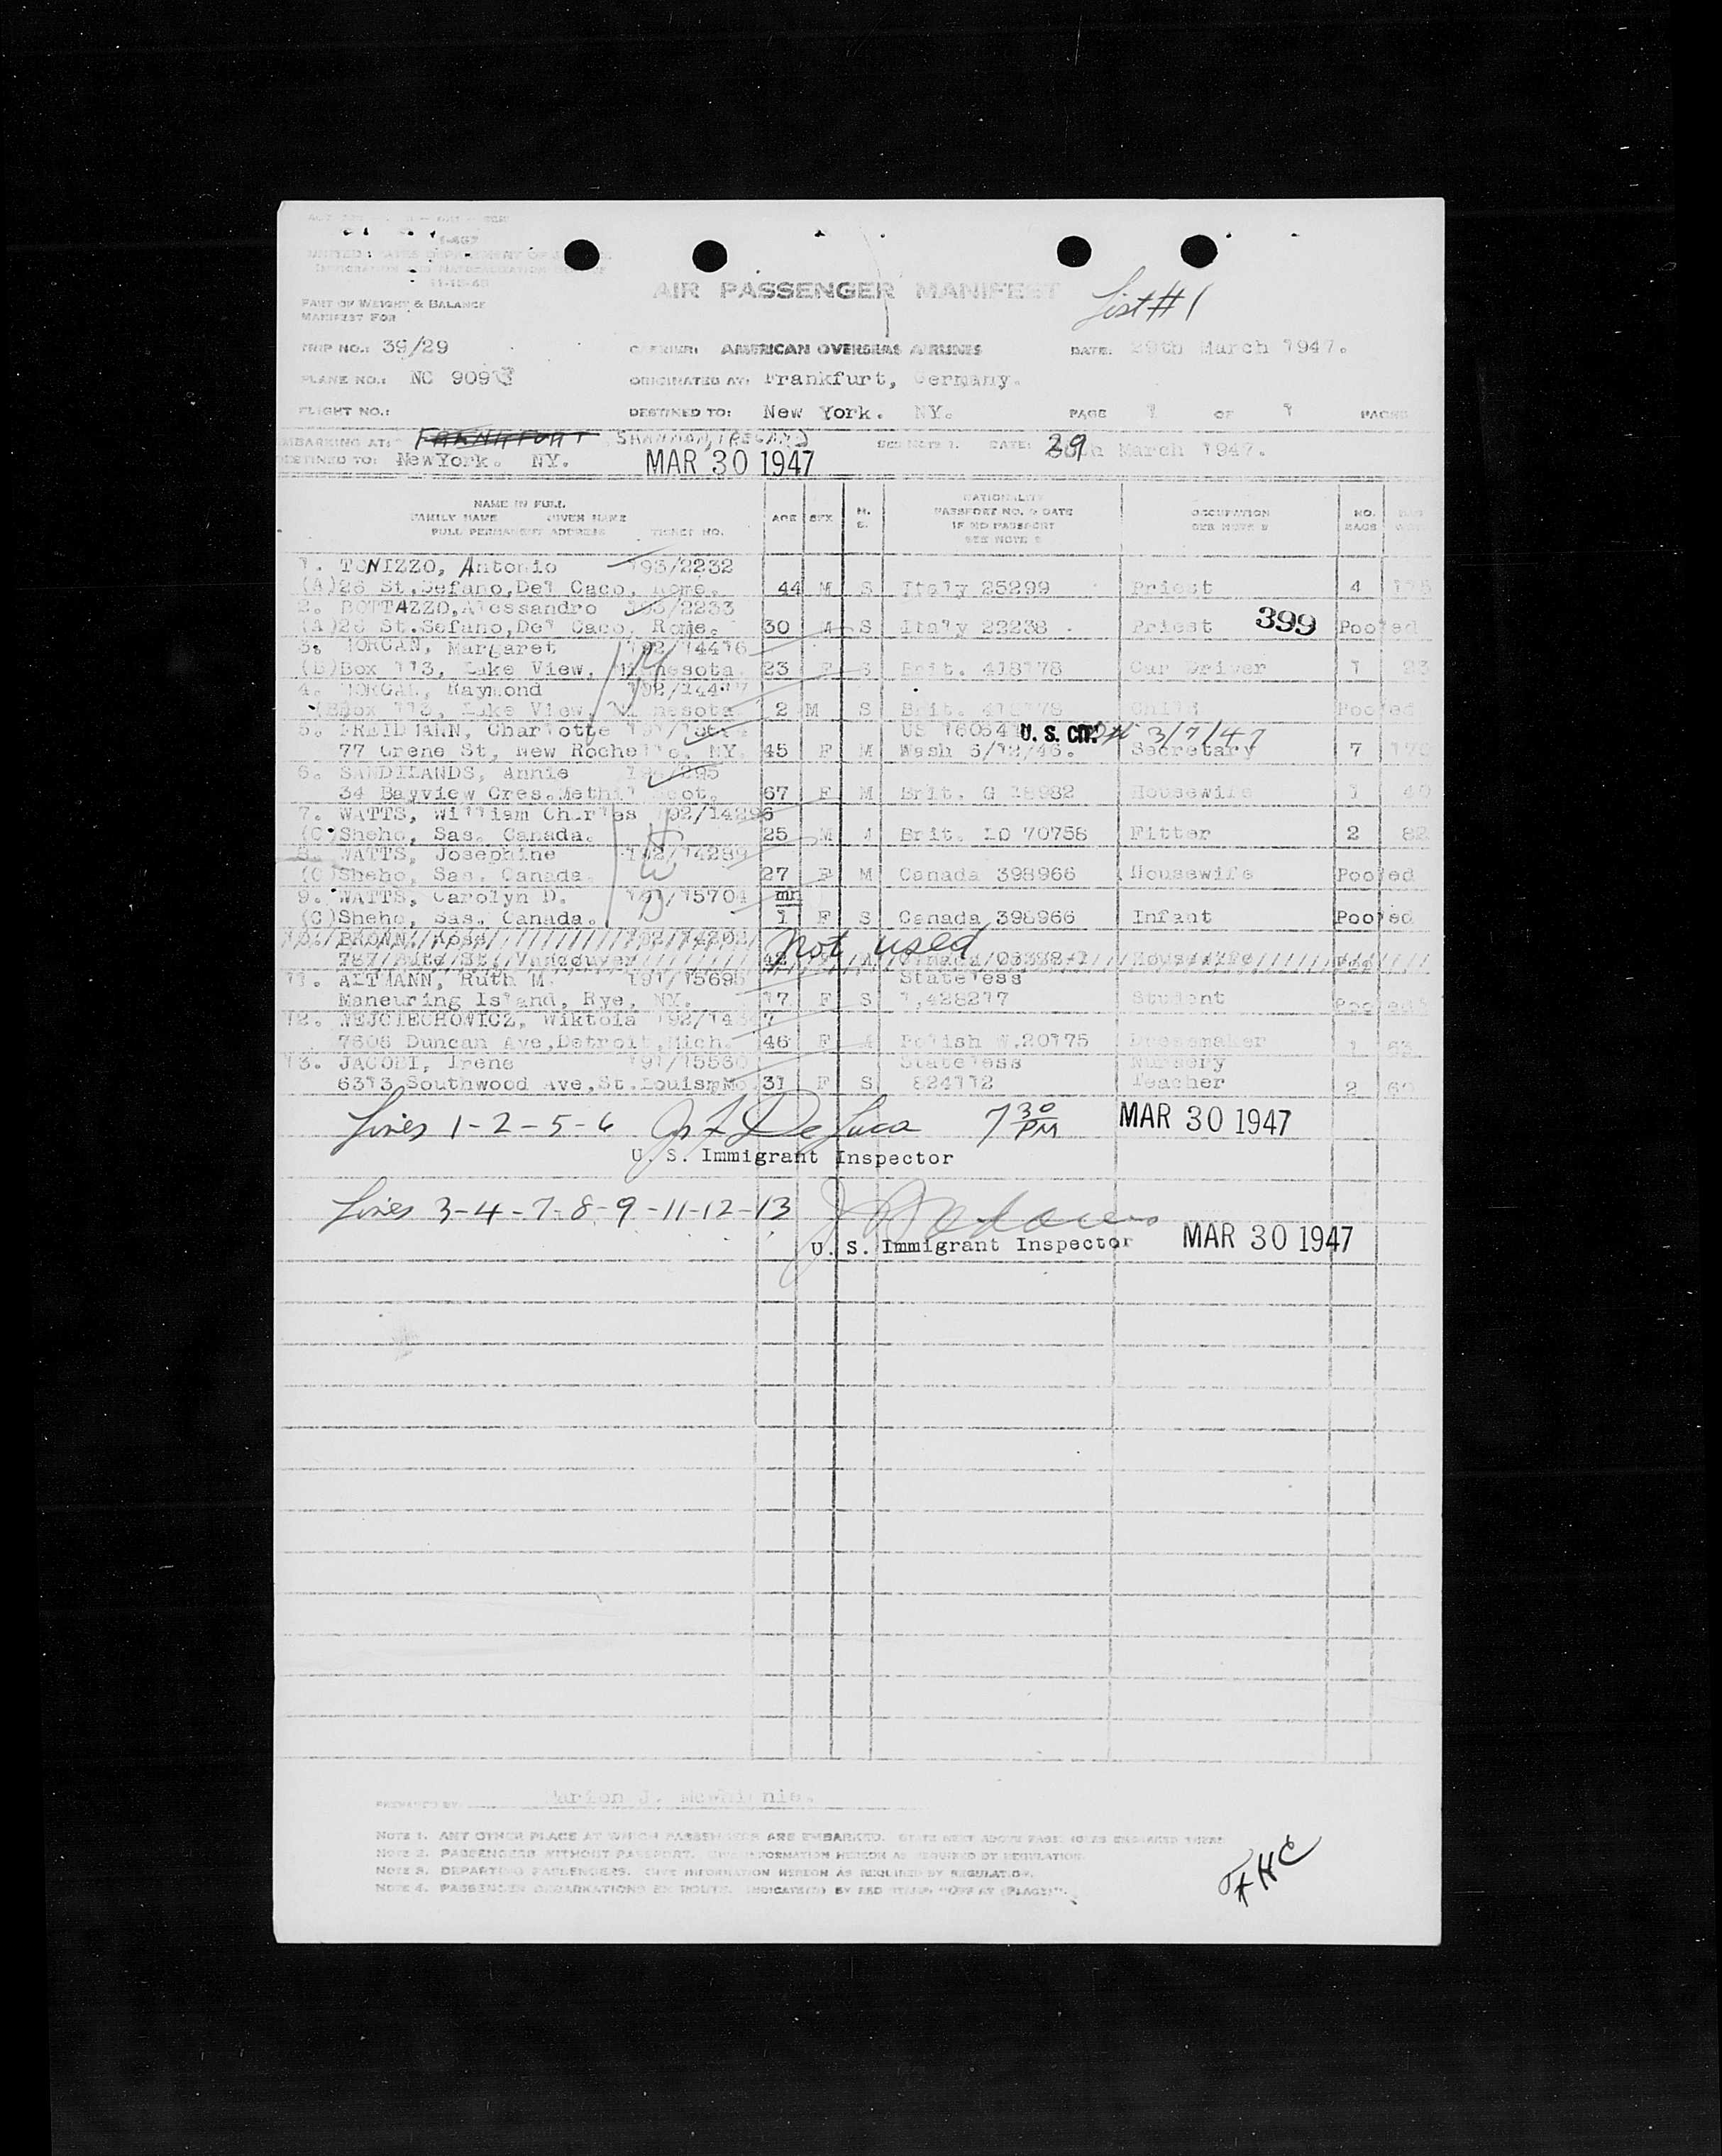 I-467
UNITED STATES DEPARTMENT OF
IMMIGRATION AND NATURALIZATION
PART OF WEIGHT & BALANCE
MANIFEST FOR
AIR PASSENGER MANIFEST
List #1
TRIP NO.: 39/29 CARRIER: AMERICAN OVERSEAS AIRLINES DATE: 29th March 1947.
PLANE NO.: NC 909 ORIGINATED AT: Frankfurt, Germany.
FLIGHT NO.: DESTINED TO: New York. NY. PAGE 1 OF 1 PAGES
EMBARKING AT: FRANKFURT SHANNON, SEE NOTE 1. DATE: 29th March 1947.
DESTINED TO: NewYork. NY. MAR 30 1947
NAME IN FULL
FAMILY NAME GIVEN NAME
FULL PERMANENT ADDRESS TICKET NO. AGE SEX M. S. NATIONALITY PASSPORT NO. & DATE IF NO PASSPORT SEE NOTE 2 OCCUPATION SEE NOTE 3 NO. BAGS
1. TONIZZO, Antonio 193/2232
(A)26 St.Sefano,Del Caco, Rome. 44 M S Italy 25299 Priest 4 175
2. BOTTAZZO,Alessandro 193/2233
(A)26 St.Sefano,Del Caco, Rome. 30 M S Italy 22238 Priest 399 Pooled
3. MORGAN, Margaret 192/14416
(B)Box 113, Lake View, Minnesota 23 F S Brit. 418178 Car Driver 1 23
4. MORGAN, Raymond
(B)Box 113, Lake View, Minnesota 2 M S Brit. 418178 Child Pooled
5. FREIDMANN, Charlotte U. S. CIT. 3/7/47
77 Grene St, New Rochelle, NY. 45 F M Wash 6/12/46. Secretary 7 170
6. SANDILANDS, Annie
34 Bayview Cres.Methil Scot. 67 F M Brit. G 18982 Housewife 1 40
7. WATTS, William Charles 192/14296
(C)Sheho, Sas. Canada. 25 M M Brit. LO 70758 Fitter 2 82
8. WATTS, Josephine 192/14289
(C)Sheho, Sas. Canada. 27 F M Canada 398966 Housewife Pooled
9. WATTS, Carolyn D. 191/15704 mn
(C)Sheho, Sas. Canada. 1 F S Canada 398966 Infant Pooled
10. BROWN, Rose Not used
787 Bute St, Vancouver 42 Canada Housewife
11. ALTMANN, Ruth M. 191/15695 Stateless
Maneuring Island, Rye, NY. 17 F S 1,428217 Student Pooled
12. WEJCIECHOWICZ, Wiktoia
7606 Duncan Ave,Detroit,Mich. 46 F M Polish W.20175 Dressmaker 1 63
13. JACOBI, Irene 191/15530 Stateless Nursery
6313 Southwood Ave,St.Louis,Mo. 31 F S 824112 Teacher 2 60
Lines 1-2-5-6 De Luca 7 30 PM MAR 30 1947
U. S. Immigrant Inspector
Lines 3-4-7-8-9-11-12-13
U. S. Immigrant Inspector MAR 30 1947
PREPARED BY Marion J.
NOTE 1. ANY OTHER PLACE AT WHICH PASSENGERS ARE EMBARKED.
NOTE 2. PASSENGERS WITHOUT PASSPORT. GIVE INFORMATION HEREON AS REQUIRED BY REGULATION.
NOTE 3. DEPARTING PASSENGERS. GIVE INFORMATION HEREON AS REQUIRED BY REGULATION.
NOTE 4. PASSENGER DEBARKATIONS EN ROUTE. INDICATE(D) BY RED STAMP "OFF AT (PLACE)".